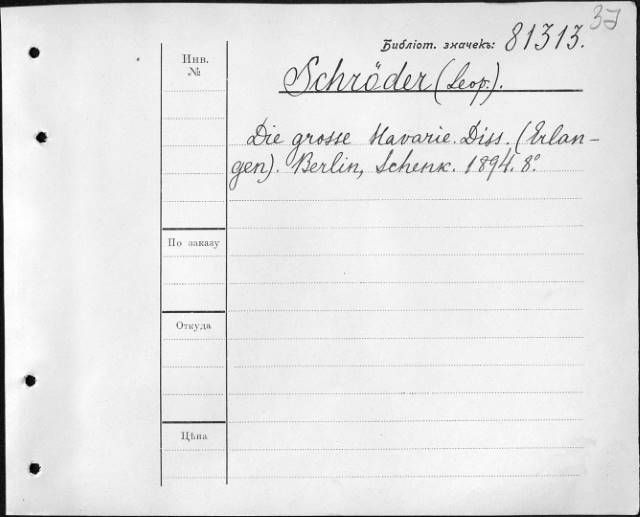 37
Библіот. значекъ: 81313.
Инв.
№
Schröder (Leop.).
Die grosse Havarie. Diss. (Erlan-
gen). Berlin, Schenk. 1894. 8°.
По заказу
Откуда
Цѣна